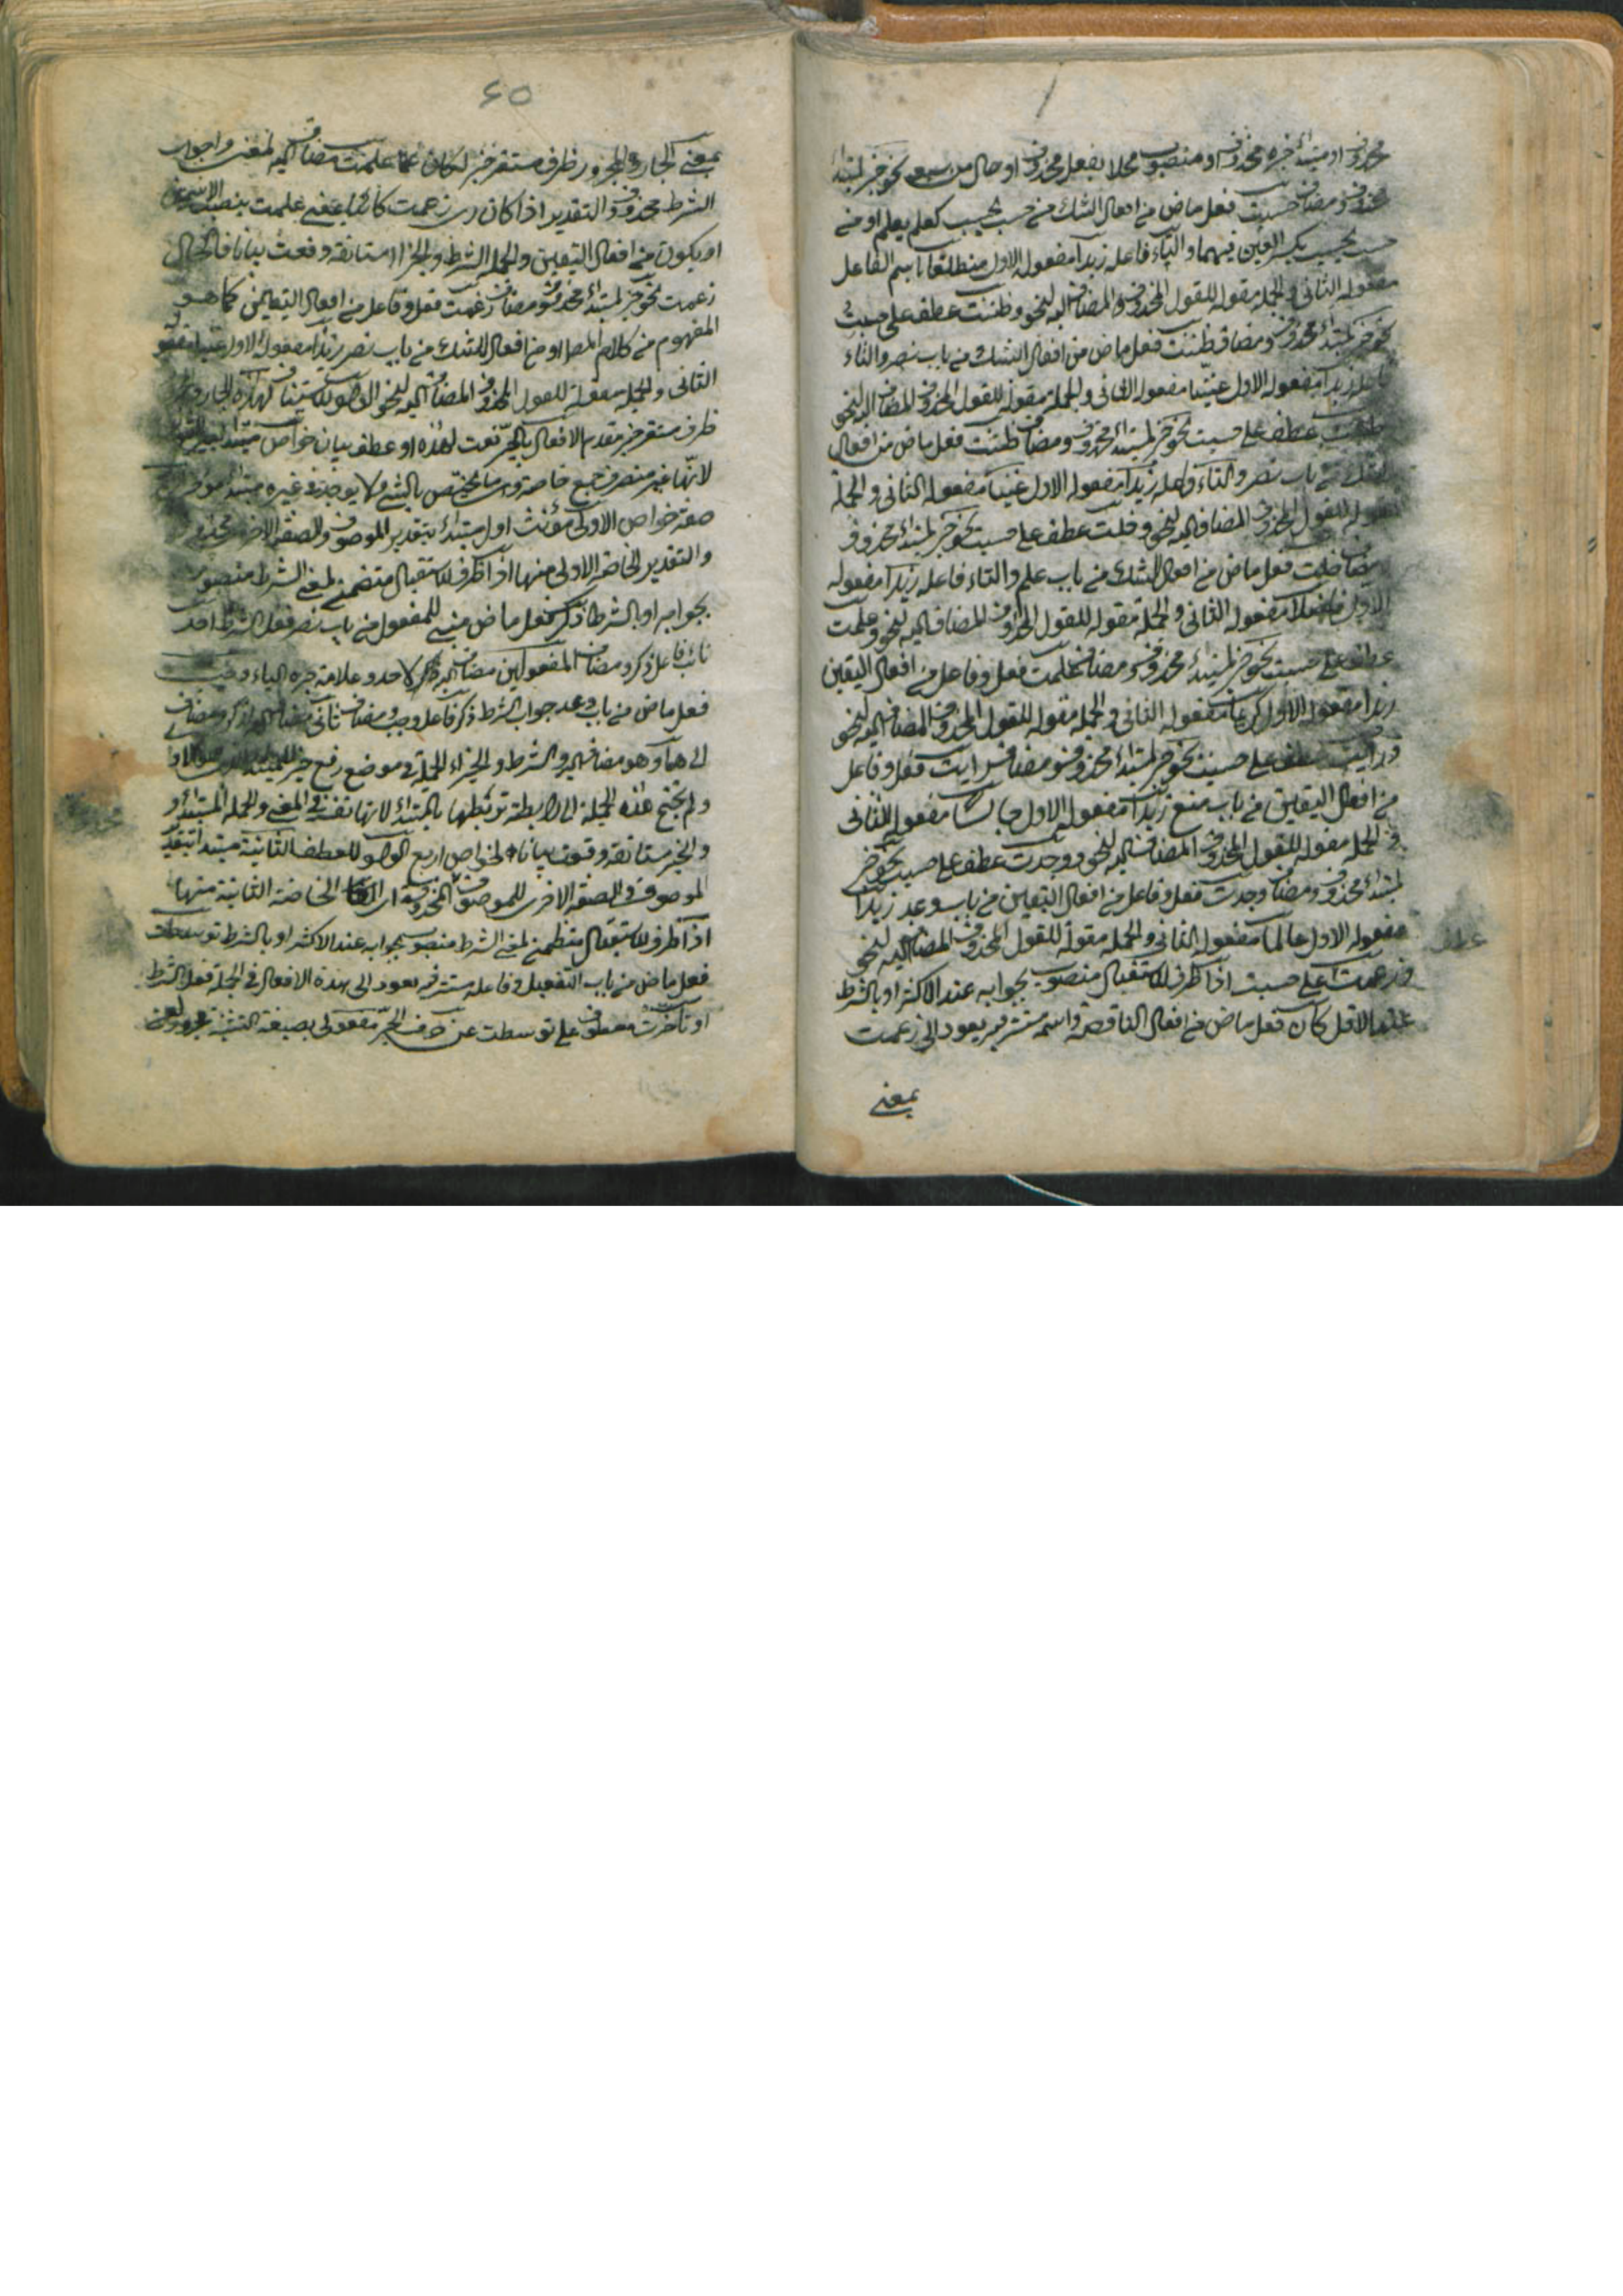 محذوف او مبتدأ خبره محذوف او منصوب محلا بفعل محذوف او حال من سبع نحو خبر لمبتدأ
محذوف ومضاف حسبت فعل ماض من افعال الشك من حسب يحسب كعلم يعلم او من
حسب يحسب بكسر العين فيهما والتاء فاعله زيدا مفعوله الاول منطلقا اسم الفاعل
مفعوله الثاني والجملة مقولة للقول المحذوف المضاف اليه لنحو وظننت عطف على حسبت
نحو خبر لمبتدأ محذوف ومضاف ظننت فعل ماض من افعال الشك من باب نصر والتاء
فاعله زيدا مفعوله الاول غنيا مفعوله الثاني والجملة مقولة للقول المحذوف المضاف اليه لنحو
عطف على حسبت نحو خبر لمبتدأ محذوف ومضاف ظننت فعل ماض من افعال
الشك من باب نصر والتاء فاعله زيدا مفعوله الاول غنيا مفعوله الثاني والجملة
مقولة للقول المحذوف المضاف اليه لنحو وخلت عطف على حسبت نحو خبر لمبتدأ محذوف
ومضاف خلت فعل ماض من افعال الشك من باب علم والتاء فاعله زيدا مفعوله
الاول فاضلا مفعوله الثاني والجملة مقولة للقول المحذوف المضاف اليه لنحو وعلمت
عطف على حسبت نحو خبر لمبتدأ محذوف ومضاف علمت فعل وفاعل من افعال اليقين
زيدا مفعوله الاول كريما مفعوله الثاني والجملة مقولة للقول المحذوف المضاف اليه لنحو
ورأيت عطف على حسبت نحو خبر لمبتدأ محذوف ومضاف رايت فعل وفاعل
من افعال اليقين من باب منع زيدا مفعوله الاول جالسا مفعوله الثاني
والجملة مقولة للقول المحذوف المضاف اليه لنحو ووجدت عطف على حسبت نحو خبر
لمبتدأ محذوف ومضاف وجدت فعل وفاعل من افعال اليقين من باب وعد زيدا
مفعوله الاول عالما مفعوله الثاني والجملة مقولة للقول المحذوف المضاف اليه لنحو
وزعمت على حسبت اذا ظرف للاستقبال منصوب بجوابه عند الاكثر او بالشرط
عند الاقل كان فعل ماض من افعال الناقصة واسمه مستتر فيه يعود الى زعمت
بمعنى
٦٥
بمعنى الجار والمجرور ظرف مستقر خبر لكان علمت مضاف اليه لمعنى وجواب
الشرط محذوف والتقدير اذا كان زعمت كائنا بمعنى علمت ينصب الاسمين
او يكون من افعال اليقين والجملة الشرط والجزاء مستانفة وقعت بيانا فالحال
زعمت نحو خبر لمبتدأ محذوف ومضاف زعمت فعل وفاعل من افعال اليقين كما هو
المفهوم من كلام المص او من افعال الشك من باب نصر زيدا مفعوله الاول غنيا مفعوله
الثاني والجملة مقولة للقول المحذوف المضاف اليه لنحو الواو للاستيناف لهذه الجار والمجرور
ظرف مستقر خبر مقدم الافعال بالجر نعت لهذه او عطف بيان خواص مبتدأ
لانها غير منصرف جمع خاصة وهي ما يختص بالشئ ولا يوجد في غيره مبتدأ مؤخر
صفة خواص الاولى مؤنث اول مبتدأ بتقدير الموصوف والصفة
والتقدير الخاصة الاولى منها اذا ظرف للاستقبال متضمن لمعنى الشرط منصوب
بجوابه او بالشرط ذكر فعل ماض مبني للمفعول من باب نصر فعل الشرط احد
نائب فاعل ذكر ومضاف المفعولين مضاف اليه لاحد وعلامة جره الياء وجب
فعل ماض من باب وعد جواب الشرط ذكر فاعل وجب ومضاف ثاني مضاف اليه لذكر ومضاف
الى هما وهو مضاف اليه والشرط والجزاء الجملة في موضع رفع خبر للمبتدأ
ولم يحتج هذه الجملة الى الرابطة تربطها بالمبتدأ لانها نفسه في المعنى والجملة المبتدأ
والخبر مستانفة وقعت بيانا لخواص اربع الواو للعطف الثانية مبتدأ بتقدير
الموصوف والصفة الاخرى للموصوف المحذوف اى الخاصة الثانية منها
اذا ظرف للاستقبال متضمن لمعنى الشرط منصوب بجوابه عند الاكثر او بالشرط توسطت
فعل ماض من باب التفعيل وفاعله مستتر فيه يعود الى هذه الافعال والجملة فعل الشرط
او تأخرت معطوف على توسطت عن حرف الجر مفعولي بصيغة التثنية مجرور بعن